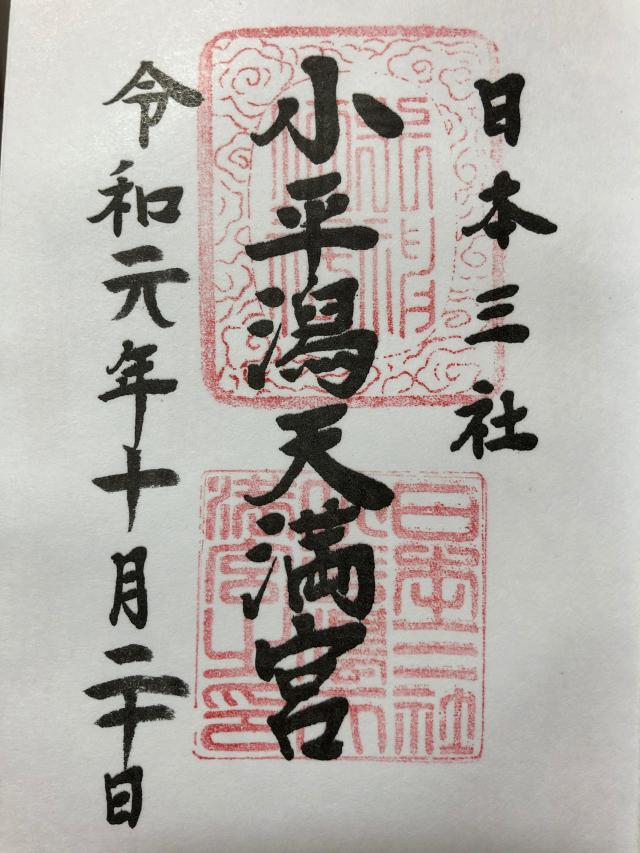 日本三社
小平潟天満宮
令和元年十月二十日